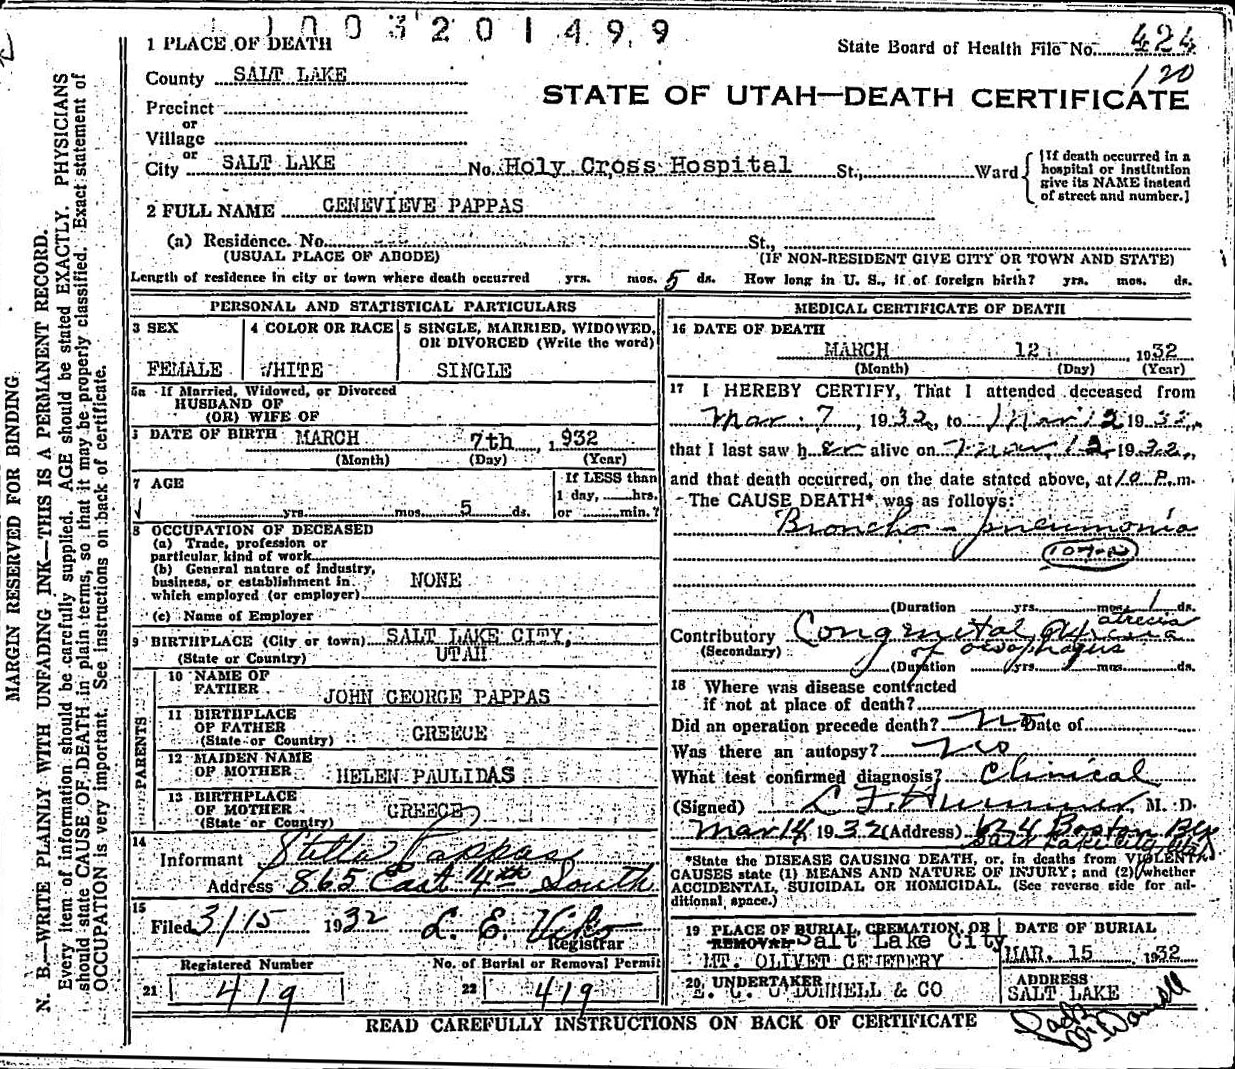 1003201499
State Board of Health File No. 424
120
STATE OF UTAH—DEATH CERTIFICATE
1 PLACE OF DEATH
County SALT LAKE
Precinct
or
Village
or
City SALT LAKE No. Holy Cross Hospital St., Ward
[If death occurred in a
hospital or institution
give its NAME instead
of street and number.]
2 FULL NAME GENEVIEVE PAPPAS
(a) Residence. No. St.,
(USUAL PLACE OF ABODE) (IF NON-RESIDENT GIVE CITY OR TOWN AND STATE)
Length of residence in city or town where death occurred yrs. mos. 5 ds. How long in U. S., if of foreign birth? yrs. mos. ds.
PERSONAL AND STATISTICAL PARTICULARS
3 SEX
FEMALE
4 COLOR OR RACE
WHITE
5 SINGLE, MARRIED, WIDOWED,
OR DIVORCED (Write the word)
SINGLE
5a If Married, Widowed, or Divorced
HUSBAND OF
(OR) WIFE OF
DATE OF BIRTH MARCH 7th, 1932
(Month) (Day) (Year)
7 AGE
yrs. mos. 5 ds.
If LESS than
1 day, hrs.
or min.?
8 OCCUPATION OF DECEASED
(a) Trade, profession or
particular kind of work
(b) General nature of industry,
business, or establishment in
which employed (or employer) NONE
(c) Name of Employer
9 BIRTHPLACE (City or town) SALT LAKE CITY,
(State or Country) UTAH
PARENTS
10 NAME OF
FATHER JOHN GEORGE PAPPAS
11 BIRTHPLACE
OF FATHER
(State or Country) GREECE
12 MAIDEN NAME
OF MOTHER HELEN PAULIDAS
13 BIRTHPLACE
OF MOTHER
(State or Country) GREECE
14
Informant Stella Pappas
Address 865 East 4th South
15
Filed 3/15 1932 L. E. Viko
Registrar
Registered Number
21 419
No. of Burial or Removal Permit
22 419
MEDICAL CERTIFICATE OF DEATH
16 DATE OF DEATH
MARCH 12, 1932
(Month) (Day) (Year)
17 I HEREBY CERTIFY, That I attended deceased from
Mar. 7, 1932, to Mar 12 1932,
that I last saw her alive on Mar 12, 1932,
and that death occurred, on the date stated above, at 10 P.m.
The CAUSE DEATH* was as follows:
Broncho-pneumonia
107-a
(Duration yrs. mos. 1 ds.
atresia
Contributory Congenital
(Secondary) of oesophagus
(Duration yrs. mos. ds.
18 Where was disease contracted
if not at place of death?
Did an operation precede death? No Date of
Was there an autopsy? no
What test confirmed diagnosis? Clinical
(Signed) M. D.
Mar 14 1932 (Address) Boston Bldg
Salt Lake City Utah
*State the DISEASE CAUSING DEATH, or, in deaths from VIOLENT
CAUSES state (1) MEANS AND NATURE OF INJURY; and (2) whether
ACCIDENTAL, SUICIDAL OR HOMICIDAL. (See reverse side for ad-
ditional space.)
19 PLACE OF BURIAL, CREMATION, OR
REMOVAL Salt Lake City
MT. OLIVET CEMETERY
DATE OF BURIAL
MAR. 15 1932
20 UNDERTAKER
E. C. O'DONNELL & CO
ADDRESS
SALT LAKE
READ CAREFULLY INSTRUCTIONS ON BACK OF CERTIFICATE
MARGIN RESERVED FOR BINDING
N. B.—WRITE PLAINLY WITH UNFADING INK—THIS IS A PERMANENT RECORD.
Every item of information should be carefully supplied. AGE should be stated EXACTLY. PHYSICIANS
should state CAUSE OF DEATH in plain terms, so that it may be properly classified. Exact statement of
OCCUPATION is very important. See instructions on back of certificate.